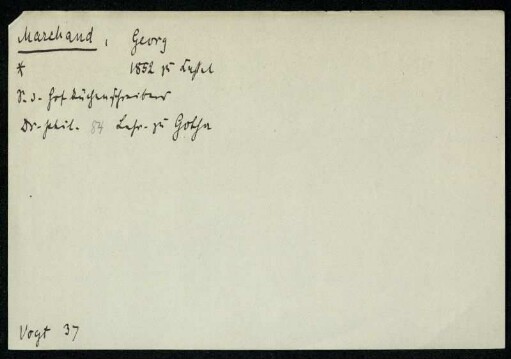 Marchand, Georg
* 1852 zu Kassel
S. d. Hofküchenschreibers
Dr. phil. 84 Lehr. zu Gotha
Vogt 37